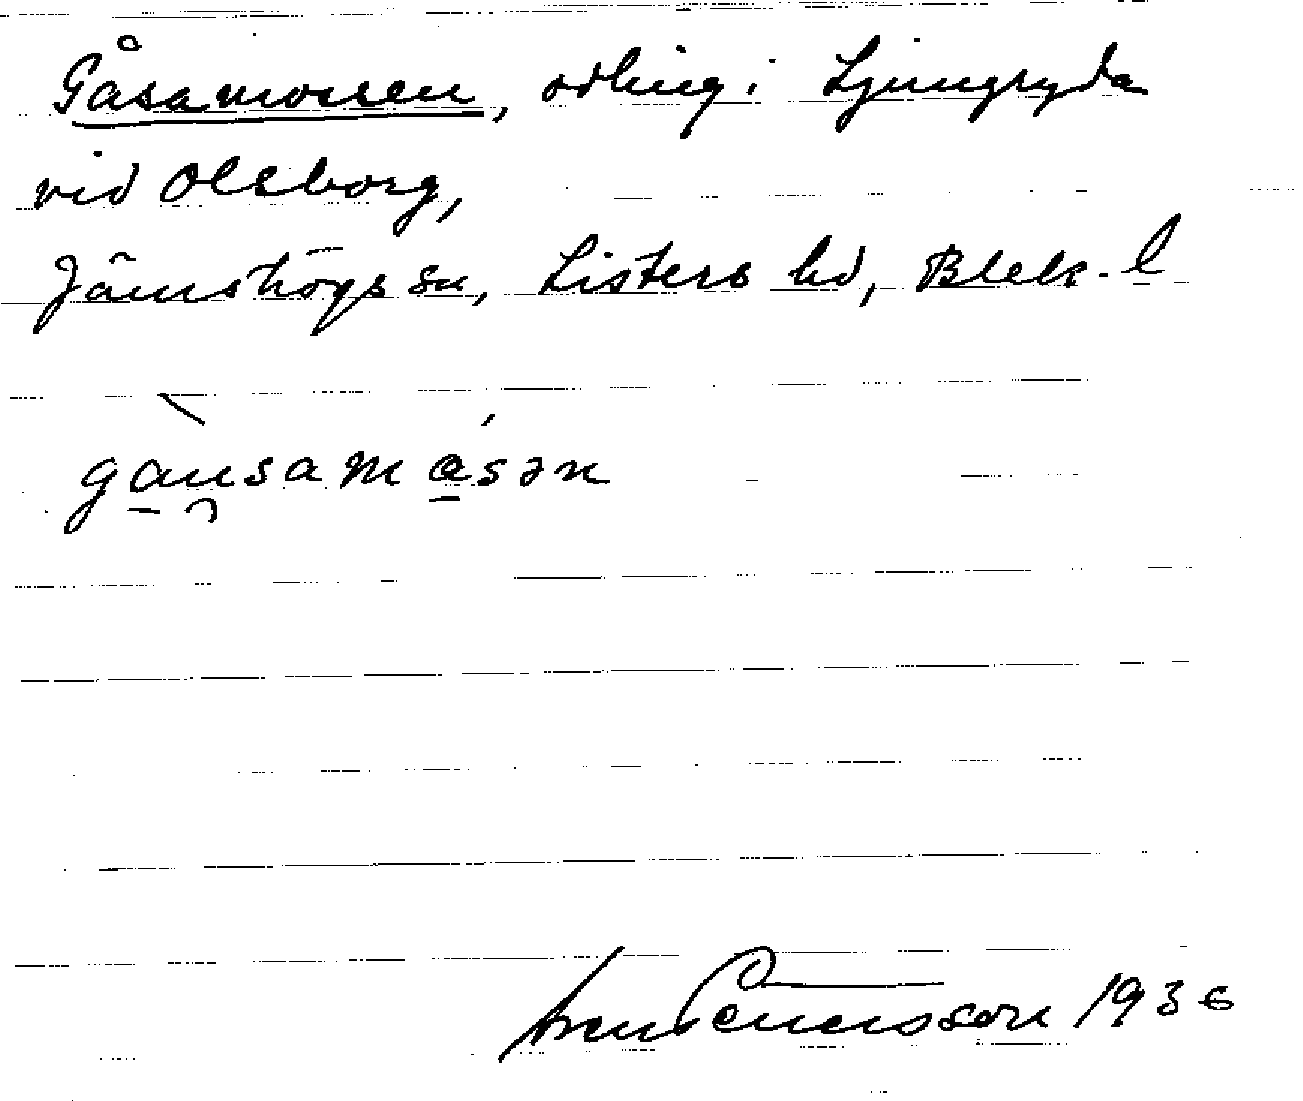 Gåsamossen, odling i Ljungryda
vid Olsborg,
Jämshögs sn, Listers hd, Blek. l
gåu̯samåsən
Sven Benson 1936